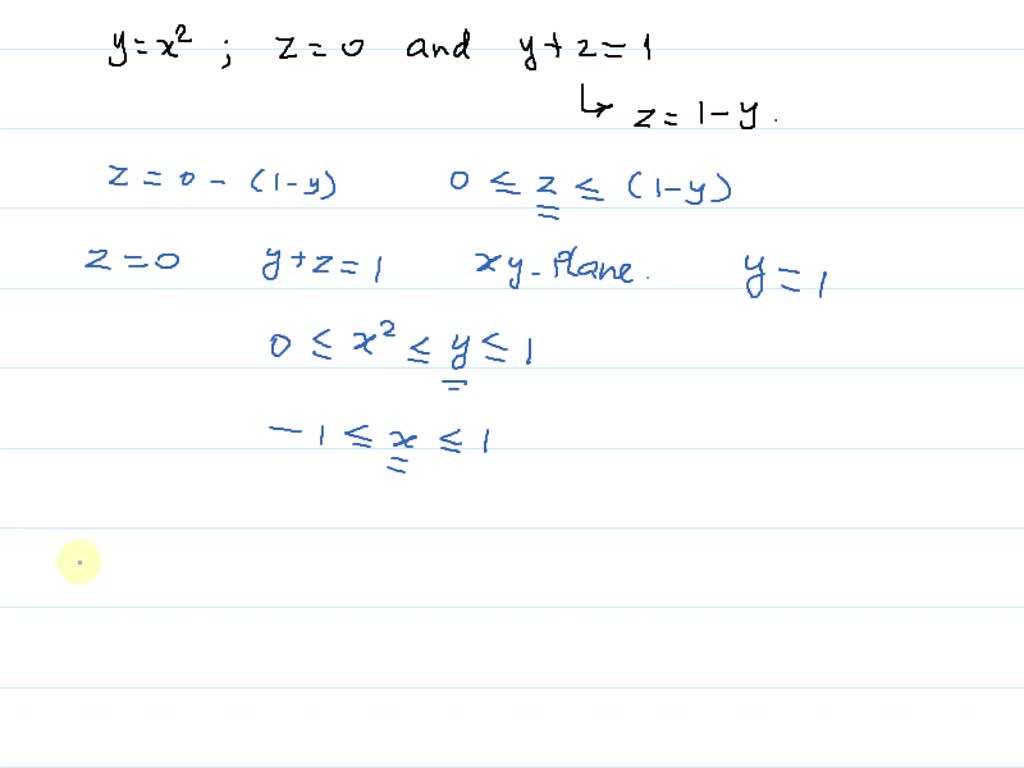 y = x² ; z = 0 and y + z = 1
↳ z = 1 - y .
z = 0 - (1 - y) 0 ≤ z ≤ (1 - y)
z = 0 y + z = 1 xy - Plane. y = 1
0 ≤ x² ≤ y ≤ 1
- 1 ≤ x ≤ 1